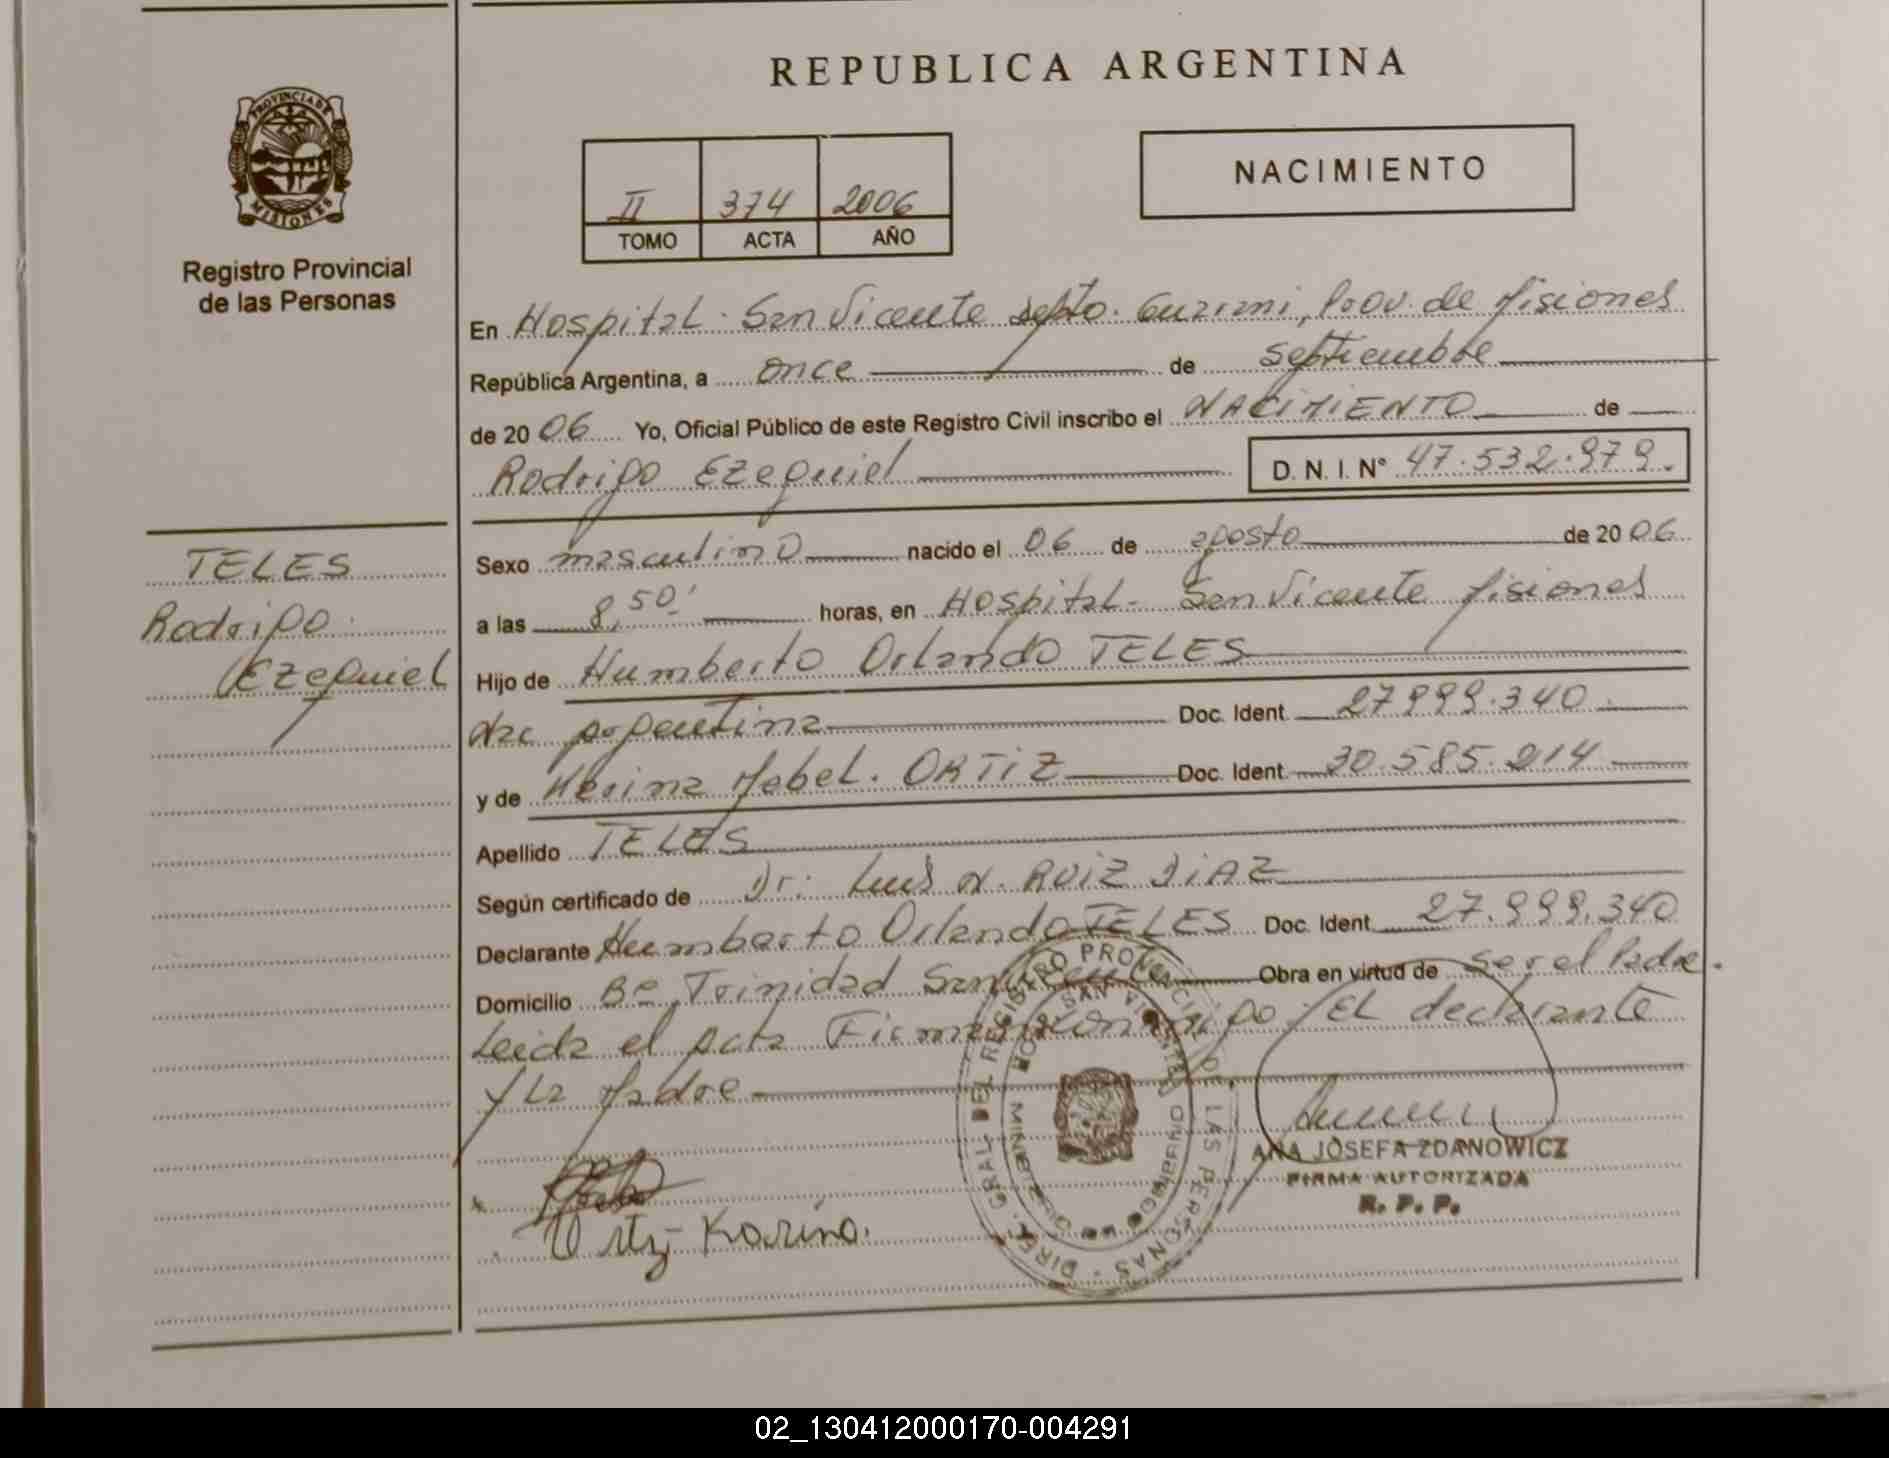 REPUBLICA ARGENTINA
PROVINCIA DE
MISIONES
Registro Provincial
de las Personas
NACIMIENTO
II 374 2006
TOMO ACTA AÑO
En Hospital - San Vicente Depto. Guarani, Prov. de Misiones
República Argentina, a once de septiembre
de 2006 Yo, Oficial Público de este Registro Civil inscribo el NACIMIENTO de
Rodrigo Ezequiel D. N. I. N° 47.532.979.
TELES
Rodrigo
Ezequiel
Sexo masculino nacido el 06 de agosto de 2006
a las 8,50' horas, en Hospital - San Vicente Misiones
Hijo de Humberto Orlando TELES
Nac argentina Doc. Ident. 27999.340.
y de Mabel. ORTIZ Doc. Ident. 30.585.214
Apellido TELES
Según certificado de Dr: Luis N. RUIZ DIAZ
Declarante Humberto Orlando TELES Doc. Ident. 27.999.340
Domicilio B° Trinidad San Obra en virtud de ser el Padre.
Leida el acta Firman conmigo / EL declarante
y La Madre
Ortiz Karina.
DIREC. GRAL. DEL REGISTRO PROVINCIAL DE LAS PERSONAS
HOSP. SAN VICENTE
ANA JOSEFA ZDANOWICZ
FIRMA AUTORIZADA
R. P. P.
02_130412000170-004291